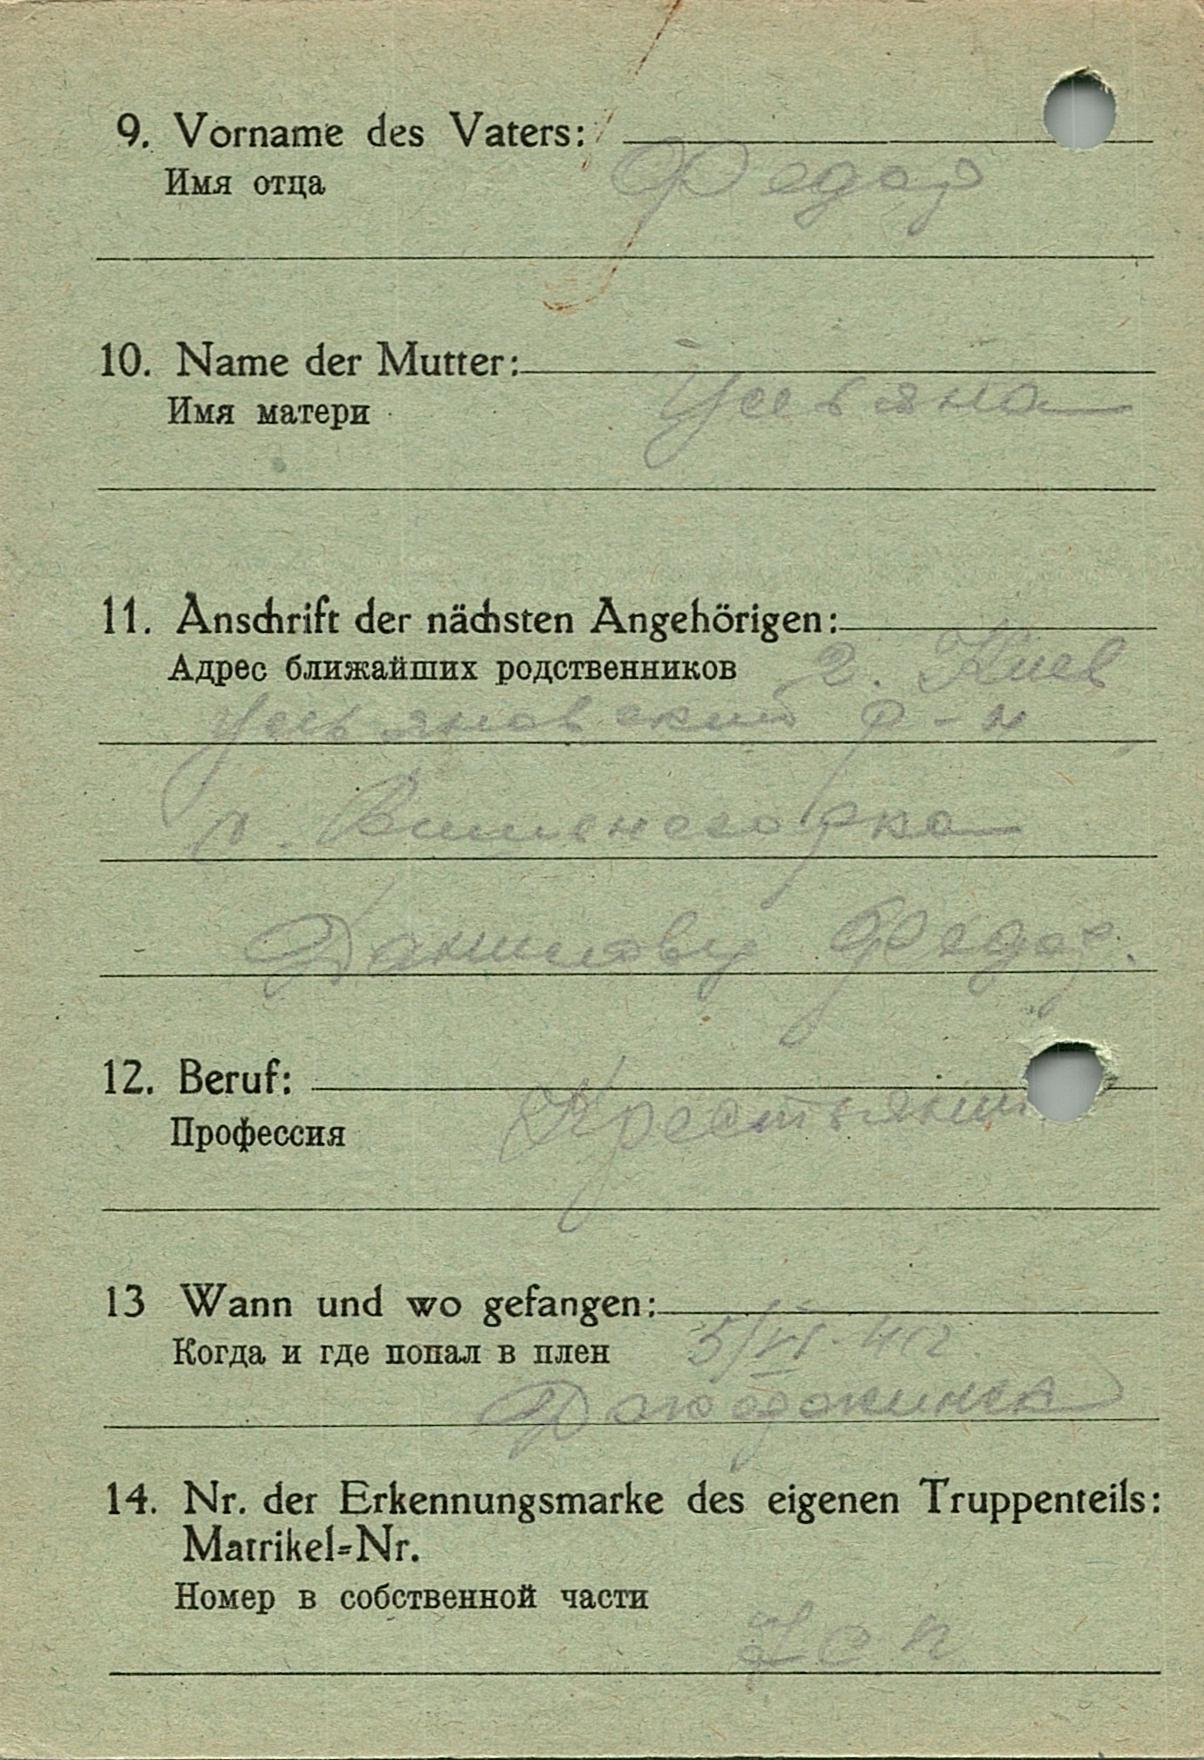 9. Vorname des Vaters:
Имя отца Федор
10. Name der Mutter:
Имя матери Ульяна
11. Anschrift der nächsten Angehörigen:
Адрес ближайших родственников г. Киев
Ульяновский р-н,
Данилову Федор.
12. Beruf:
Профессия Крестьянин
13 Wann und wo gefangen:
Когда и где попал в плен 5/VI.
14. Nr. der Erkennungsmarke des eigenen Truppenteils:
Matrikel=Nr.
Номер в собственной части